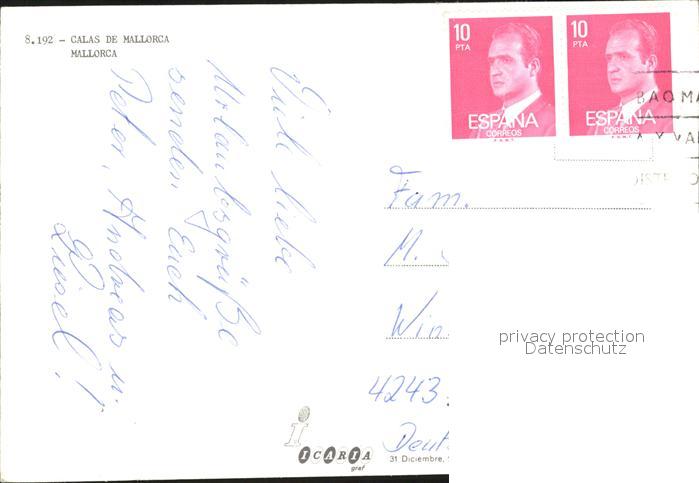 8.192 - CALAS DE MALLORCA
MALLORCA
10
PTA
ESPAÑA
CORREOS
F.N.M.T.
10
PTA
ESPAÑA
CORREOS
F.N.M.T.
Viele liebe
Urlaubsgrüße
senden Euch
Peter, Andreas u.
Liesel!
Fam.
M.
Win
4243
Deut
privacy protection
Datenschutz
i
ICARIA
graf
31 Diciembre,